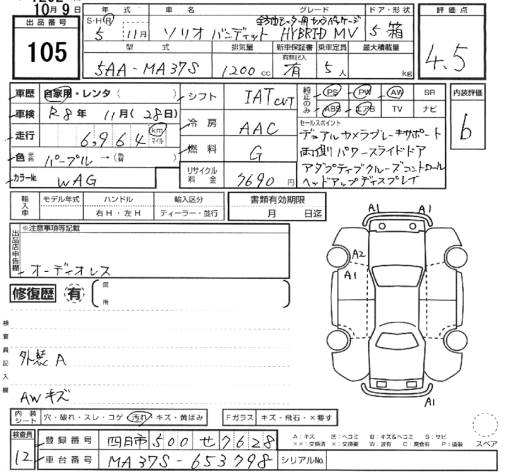 10月9日
出品番号
105
年式 車名 グレード ドア・形状 評価点
S・H・R 5年 11月 ソリオ バンディット HYBRID MV 5 箱
4.5
型式 排気量 新車保証書 乗車定員 最大積載量
5AA-MA37S 1200cc 有 5人 kg
車歴 自家用・レンタ( )
シフト IAT CVT
純正のみ PS PW AW SR
ABS エアB TV ナビ
内装評価 b
車検 R8年 11月(28日)
冷房 AAC
走行 6,964 km マイル
色 パープル→( )
燃料 G
カラーNo. WAG
リサイクル料金 7690円
セールスポイント
デュアルカメラブレーキサポート
両側パワースライドドア
アダプティブクルーズコントロール
ヘッドアップディスプレイ
輸入車 モデル年式 ハンドル 輸入区分
右H・左H ディーラー・並行
書類有効期限
月 日迄
出品店申告欄
※注意事項等記載
オーディオレス
修復歴 有
箇所
検査員記入欄
外装A
AWキズ
A1 A1
A2
A1
A1 A1
内装シート 穴・破れ・スレ・コゲ 汚れ キズ・黄ばみ
Fガラス キズ・飛石・×要す
検査員 12
登録番号 四日市 500 せ 7628
車台番号 MA37S-653798
シリアルNo.
スペア